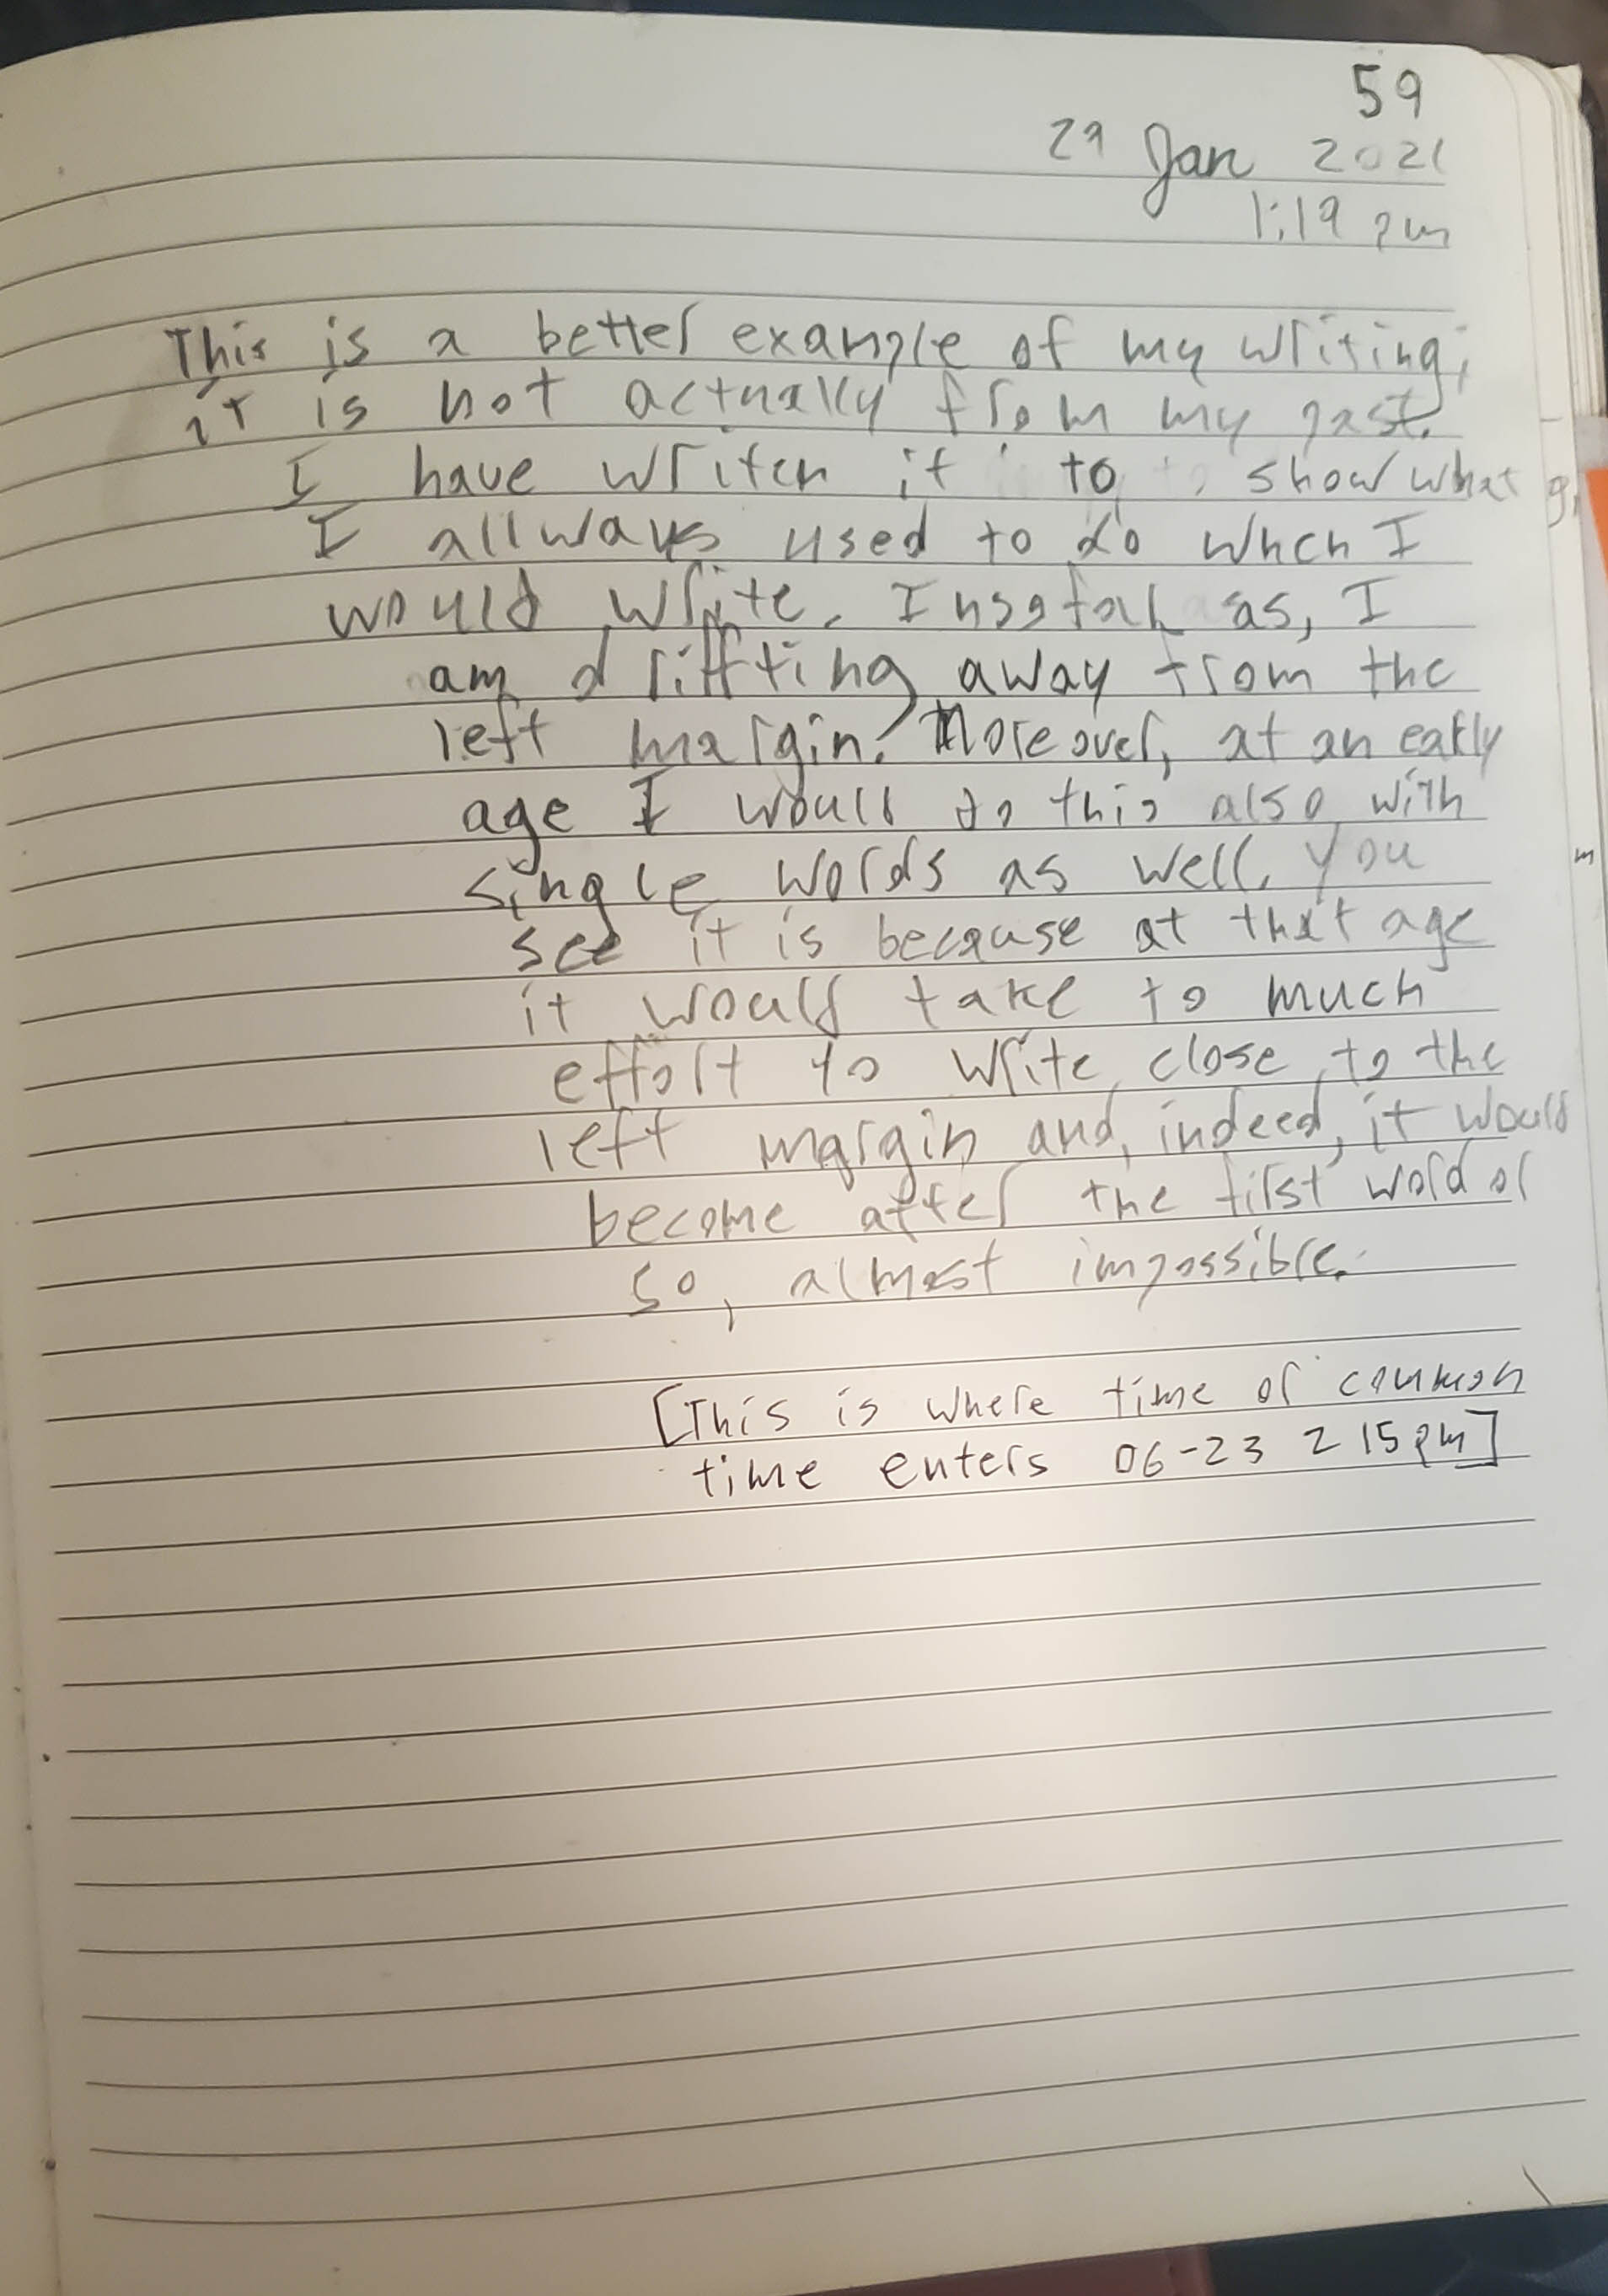 59
29 Jan 2021
1:19 pm
This is a better example of my writing;
it is not actually from my past.
I have writen it to show what
I allways used to do when I
would write. Insofar as, I
am driffting away from the
left margin. Moreover, at an early
age I would do this also with
single words as well. You
see it is because at that age
it would take to much
effort to write close to the
left margin and, indeed, it would
become after the first word or
so, almost impossible.
[This is where time of common
time enters 06-23 2 15pm]